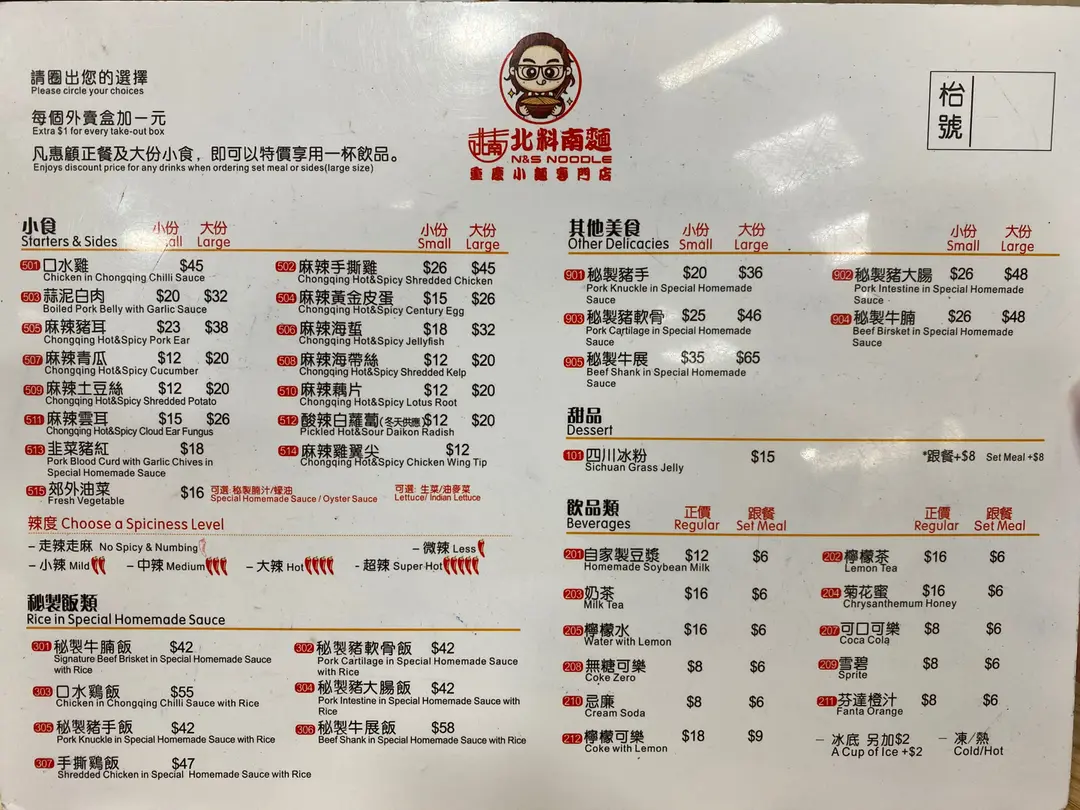 請圈出您的選擇
Please circle your choices
每個外賣盒加一元
Extra $1 for every take-out box
凡惠顧正餐及大份小食，即可以特價享用一杯飲品。
Enjoys discount price for any drinks when ordering set meal or sides(large size)
北料南麵
N&S NOODLE
重慶小麵專門店
枱號
小食 小份 大份 小份 大份
Starters & Sides all Large Small Large
501 口水雞 $45
Chicken in Chongqing Chilli Sauce
502 麻辣手撕雞 $26 $45
Chongqing Hot&Spicy Shredded Chicken
503 蒜泥白肉 $20 $32
Boiled Pork Belly with Garlic Sauce
504 麻辣黃金皮蛋 $15 $26
Chongqing Hot&Spicy Century Egg
505 麻辣豬耳 $23 $38
Chongqing Hot&Spicy Pork Ear
506 麻辣海蜇 $18 $32
Chongqing Hot&Spicy Jellyfish
507 麻辣青瓜 $12 $20
Chongqing Hot&Spicy Cucumber
508 麻辣海帶絲 $12 $20
Chongqing Hot&Spicy Shredded Kelp
509 麻辣土豆絲 $12 $20
Chongqing Hot&Spicy Shredded Potato
510 麻辣藕片 $12 $20
Chongqing Hot&Spicy Lotus Root
511 麻辣雲耳 $15 $26
Chongqing Hot&Spicy Cloud Ear Fungus
512 酸辣白蘿蔔(冬天供應) $12 $20
Pickled Hot&Sour Daikon Radish
513 韭菜豬紅 $18
Pork Blood Curd with Garlic Chives in
Special Homemade Sauce
514 麻辣雞翼尖 $12
Chongqing Hot&Spicy Chicken Wing Tip
515 郊外油菜 $16 可選:秘製腩汁/蠔油 可選: 生菜/油麥菜
Fresh Vegetable Special Homemade Sauce / Oyster Sauce Lettuce/ Indian Lettuce
辣度 Choose a Spiciness Level
– 走辣走麻 No Spicy & Numbing – 微辣 Less
– 小辣 Mild – 中辣 Medium – 大辣 Hot – 超辣 Super Hot
秘製飯類
Rice in Special Homemade Sauce
301 秘製牛腩飯 $42
Signature Beef Brisket in Special Homemade Sauce
with Rice
302 秘製豬軟骨飯 $42
Pork Cartilage in Special Homemade Sauce
with Rice
303 口水鷄飯 $55
Chicken in Chongqing Chilli Sauce with Rice
304 秘製豬大腸飯 $42
Pork Intestine in Special Homemade Sauce with
Rice
305 秘製豬手飯 $42
Pork Knuckle in Special Homemade Sauce with Rice
306 秘製牛展飯 $58
Beef Shank in Special Homemade Sauce with Rice
307 手撕鷄飯 $47
Shredded Chicken in Special Homemade Sauce with Rice
其他美食 小份 大份 小份 大份
Other Delicacies Small Large Small Large
901 秘製豬手 $20 $36
Pork Knuckle in Special Homemade
Sauce
902 秘製豬大腸 $26 $48
Pork Intestine in Special Homemade
Sauce
903 秘製豬軟骨 $25 $46
Pork Cartilage in Special Homemade
Sauce
904 秘製牛腩 $26 $48
Beef Birsket in Special Homemade
Sauce
905 秘製牛展 $35 $65
Beef Shank in Special Homemade
Sauce
甜品
Dessert
101 四川冰粉 $15 *跟餐+$8 Set Meal +$8
Sichuan Grass Jelly
飲品類 正價 跟餐 正價 跟餐
Beverages Regular Set Meal Regular Set Meal
201 自家製豆漿 $12 $6
Homemade Soybean Milk
202 檸檬茶 $16 $6
Lemon Tea
203 奶茶 $16 $6
Milk Tea
204 菊花蜜 $16 $6
Chrysanthemum Honey
205 檸檬水 $16 $6
Water with Lemon
207 可口可樂 $8 $6
Coca Cola
208 無糖可樂 $8 $6
Coke Zero
209 雪碧 $8 $6
Sprite
210 忌廉 $8 $6
Cream Soda
211 芬達橙汁 $8 $6
Fanta Orange
212 檸檬可樂 $18 $9
Coke with Lemon
– 冰底 另加$2 – 凍/熱
A Cup of Ice +$2 Cold/Hot